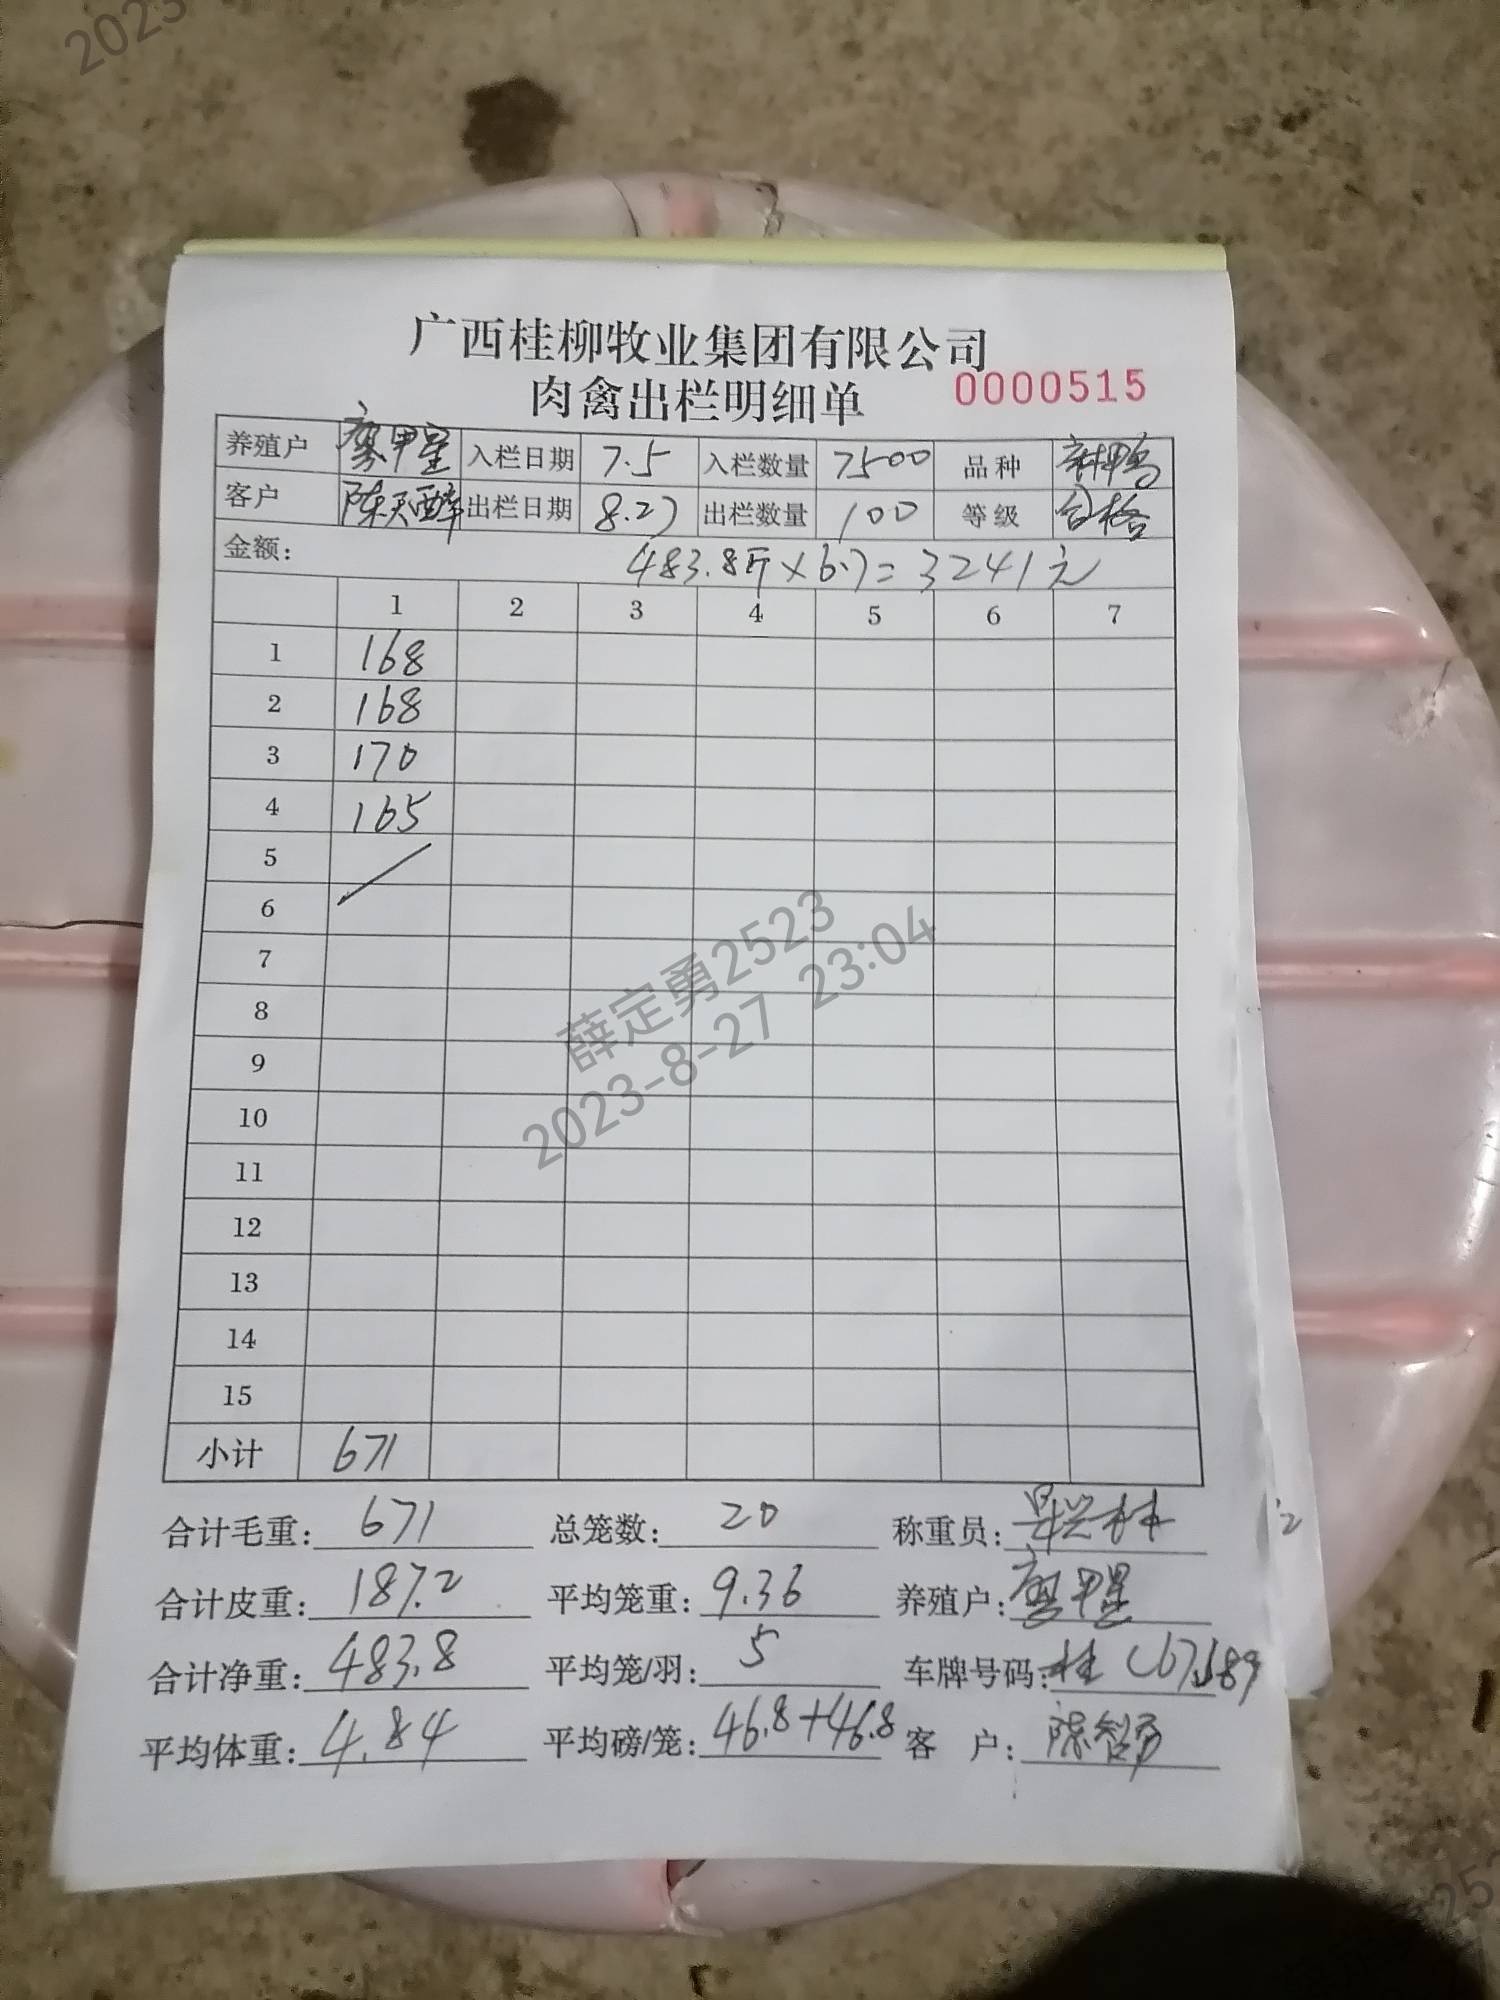 2023
广西桂柳牧业集团有限公司
肉禽出栏明细单 0000515
养殖户 廖甲星 入栏日期 7.5 入栏数量 7500 品种
客户 陈天醉 出栏日期 8.27 出栏数量 100 等级 合格
金额: 483.8斤×6.7=3241元
1 2 3 4 5 6 7
1 168
2 168
3 170
4 165
5
6
7
8
9
10
11
12
13
14
15
小计 671
薛定勇2523
2023-8-27 23:04
合计毛重: 671 总笼数: 20 称重员:
合计皮重: 187.2 平均笼重: 9.36 养殖户: 廖甲星
合计净重: 483.8 平均笼/羽: 5 车牌号码: 桂
平均体重: 4.84 平均磅/笼: 46.8+46.8 客 户: